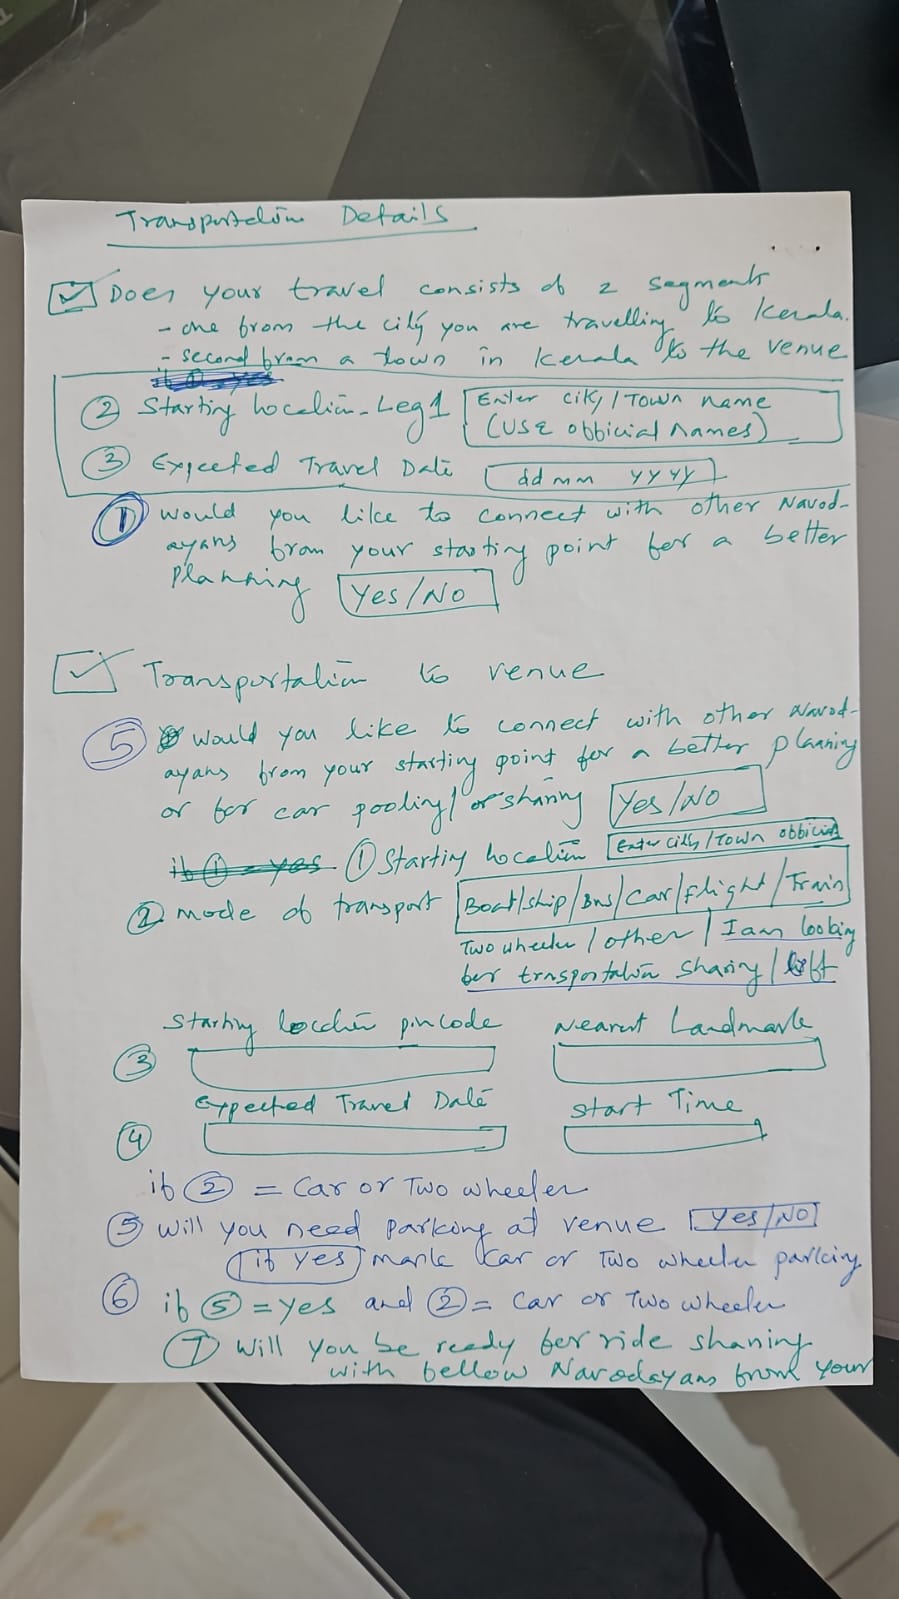 Transportation Details
Does your travel consists of 2 segments
- one from the city you are travelling to Kerala.
- second from a town in Kerala to the venue
② Starting Location - Leg 1 Enter city / Town name
(USE official names)
③ Expected Travel Date dd mm yyyy
① Would you like to connect with other Navod-
ayans from your starting point for a better
planning Yes/No
Transportation to venue
⑤ Would you like to connect with other Navod-
ayans from your starting point for a better planning
or for car pooling / or sharing Yes/No
if ① = yes ① Starting Location Enter city/Town official
② mode of transport Boat/ship/Bus/Car/flight/Train
Two wheeler / other / I am looking
for trnsportation sharing / lift
Starting location pincode Nearest Landmark
③
Expected Travel Date Start Time
④
if ② = Car or Two wheeler
⑤ Will you need parking at venue Yes/NO
if yes mark Car or Two wheeler parking
⑥ if ⑤ = yes and ② = Car or Two wheeler
⑦ Will you be ready for ride sharing
with fellow Navodayans from your